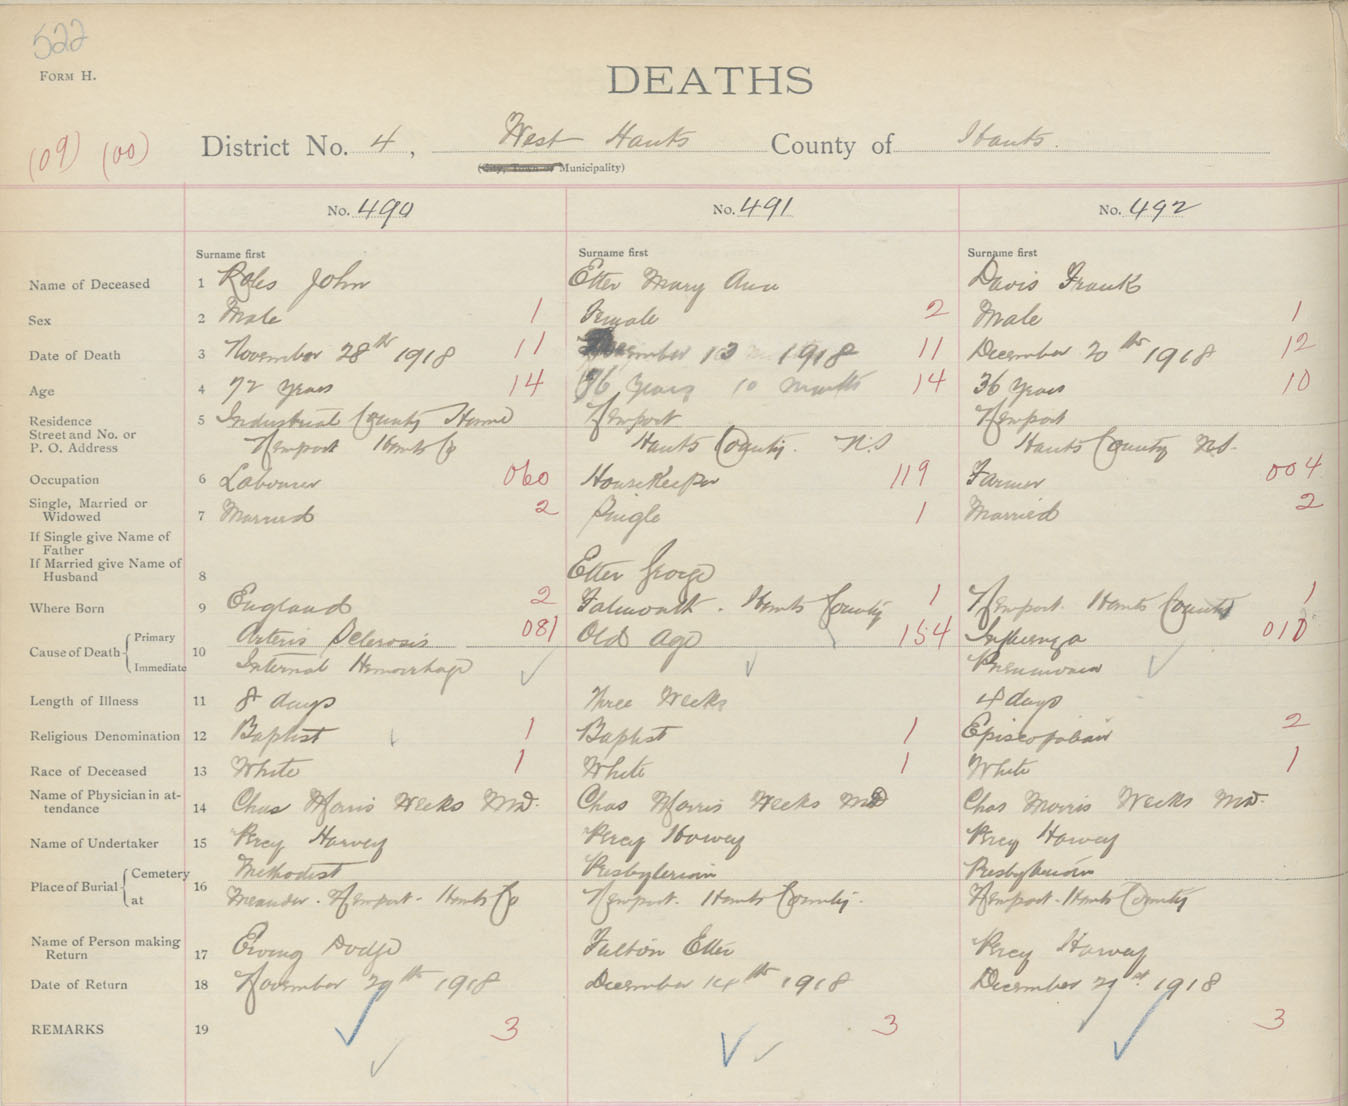 522
FORM H.
DEATHS
(09) (00)
District No. 4, West Hants County of Hants.
(City, Town or Municipality)
No. 490 No. 491 No. 492
Surname first Surname first Surname first
Name of Deceased 1 Roles John Etter Mary Ann Davis Frank
Sex 2 Male 1 Female 2 Male 1
Date of Death 3 November 28th 1918 11 13 1918 11 December 20th 1918 12
Age 4 72 years 14 76 Years 10 months 14 36 years 10
Residence 5 Industrial County Home Newport Newport
Street and No. or
P. O. Address Newport Hants Co Hants County. N.S Hants County N.S.
Occupation 6 Labourer 060 HouseKeeper 119 Farmer 004
Single, Married or
Widowed 7 Married 2 Single 1 Married 2
If Single give Name of
Father
If Married give Name of
Husband 8 Etter George
Where Born 9 England 2 Falmouth. Hants County 1 Newport. Hants County 1
Cause of Death 10
Primary Arteris Sclerosis 081 Old Age 154 Influenza 010
Immediate Internal Hemorrhage Pneumonia
Length of Illness 11 8 days Three Weeks 4 days
Religious Denomination 12 Baptist 1 Baptist 1 Episcopalian 2
Race of Deceased 13 White 1 White 1 White 1
Name of Physician in at-
tendance 14 Chas Morris Weeks MD. Chas Morris Weeks MD Chas Morris Weeks MD.
Name of Undertaker 15 Percy Harvey Percy Harvey Percy Harvey
Place of Burial 16
Cemetery Methodist Presbyterian Presbyterian
at Meander. Newport. Hants Co Newport. Hants County. Newport. Hants County
Name of Person making
Return 17 Ewing Dodge Fulton Etter Percy Harvey
Date of Return 18 November 29th 1918 December 14th 1918 December 21st. 1918
REMARKS 19 3 3 3